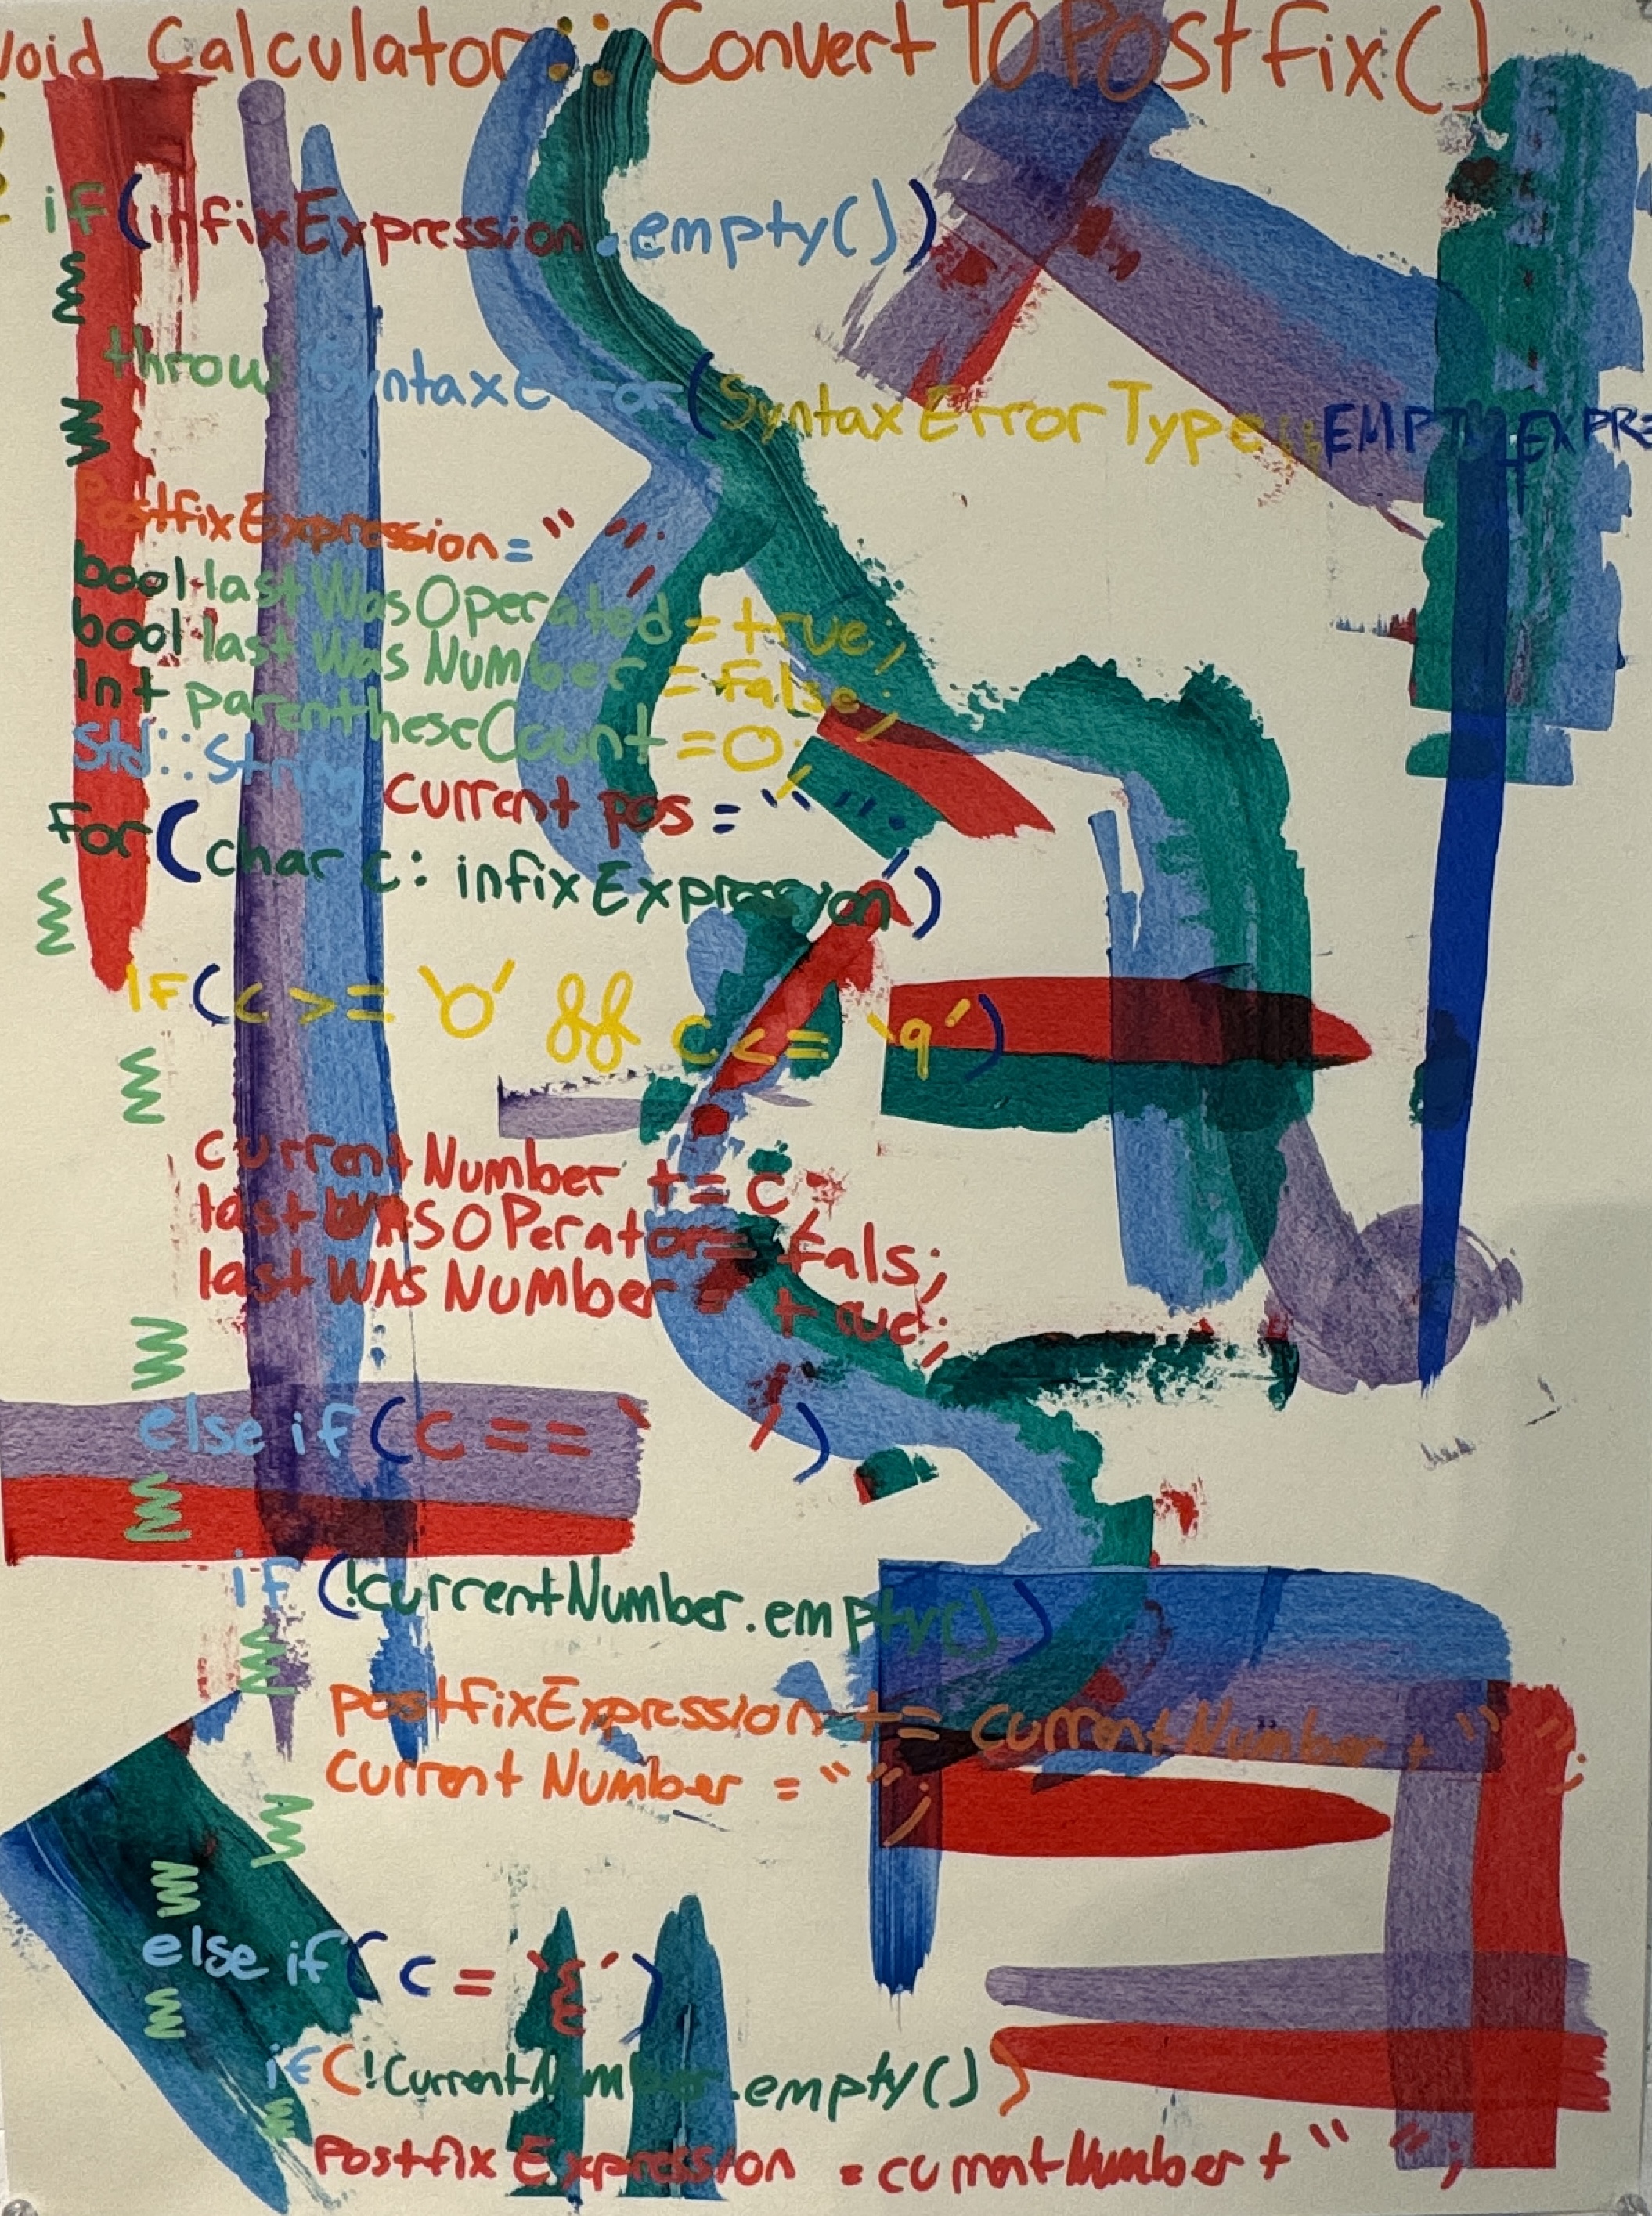 void Calculator::ConvertTOPostfix()
if(infixExpression.empty())
{
throw SyntaxError(SyntaxErrorType::EMPTY_EXPRE
}
PostfixExpression=" ";
bool lastWasOperated=true;
bool last Was Number=false;
Int parentheseCount=0;
Std::String current pos=" ";
for(char c: infixExpression)
{
IF(c>='0' && c<='9')
{
currentNumber += c;
lastWASOPerator=fals;
lastWASNumber=true;
}
else if(c==' ')
{
if(!currentNumber.empty())
{
postfixExpression += currentNumber+" ";
Current Number=" ";
}
}
else if(c='{')
{
if(!CurrentNumber.empty())
{
PostfixExpression =currentNumber+" ";